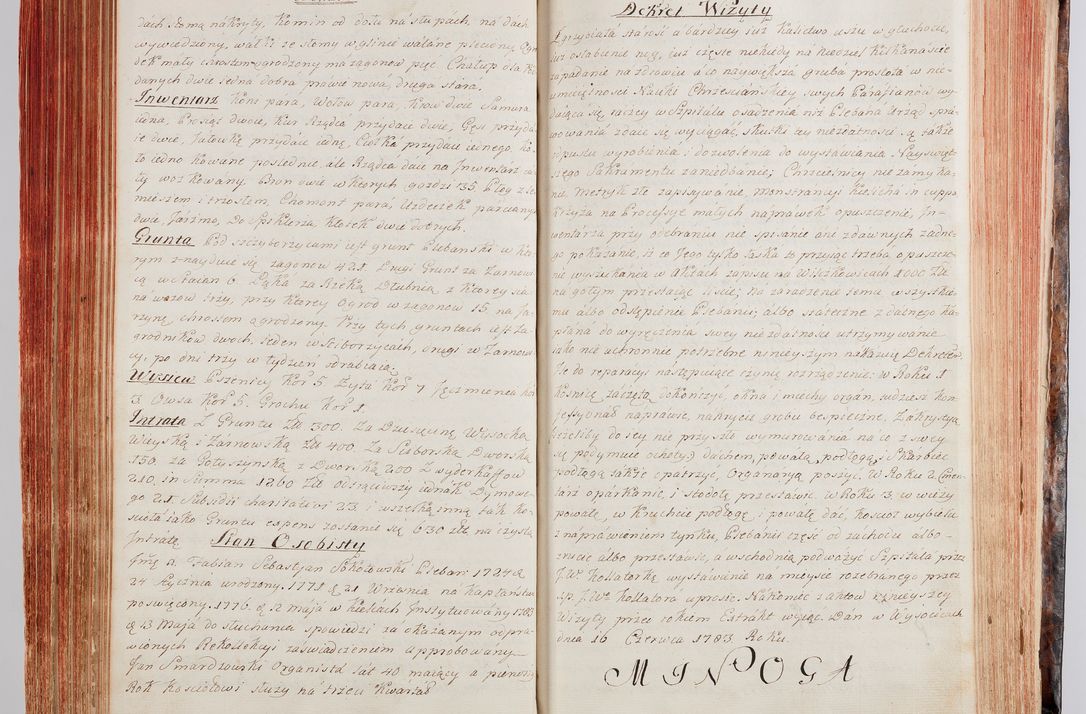 dach słomą nakryty, komin od dołu na stupach, na dach
wywiedziony, wałki ze słomy w glinie walane plecione, Ogro
dek mały chrostem ogrodzony ma zagonow pięc. Chałup dla
danych dwie jedna dobra prawie nowa, druga stara.
Inwentarz Koni para, Wołow para, Krow dwie Samura
iedna, Prosiąt dwoie, Kur Rządca przydaie dwie, Gęsi przyda
ie dwie, Jałowkę przydaie iednę, Cielka przydaie iednego, Ko
ło iedno kowane poslednie ale Rządca daie na Inwentarz ca
ły woz kowany. Bron dwie w ktorych gozdzi 35 Pług z Le
mieszem i trosłem, Chomont para, Uzdeczek parcianych
dwie, Jarzmo, Do Spiklerza Kłotek dwie dobrych.
Grunta Pod Scczyborzycami iest grunt Plebanski w kto
rym znayduie się zagonow 421. Drugi Grunt za Zarnow
icą w Staian 6. Łąka za Rzeką Dłubnią z ktorey sia
na wozow trzy, przy ktorey Ogrod w zagonow 15 na Ja
rzynę chrostem ogrodzony. Przy tych gruntach iest Za
grodnikow dwoch, Jeden w Sciborzycach, drugi w Zarnow
cy, po dni trzy w tydzień zdrabiaią.
Wysiew Pszenicy Kor 5. Zyta Kor 7 Jęczmienia kor
3. Owsa Kor 5. Grochu Kor 1.
Intrata Z Gruntu Złł 300. Za Dziesięcinę Wysocką
Wieyską i Zarnowską Złł 400. Za Sciborską Dworską
150. za Gołyszynską z Dworską 200 Z wyderkaffow
210. in Summa 1260 Złł odtrąciwszy iednak Dymowe
go 21. Subsidii charitativi 23. i wszelką inną tak ko
scioła iako Gruntu expens zostanie się 630 złł. na czystą
Intratę
Stan Osobisty
Jmć X. Fabian Sebastyan Sokołowski Pleban 1724 d
24 Stycznia urodzony. 1771 d 21 Wrzesnia na kapłaństwo
poswięcony. 1776. d 12 maja w Kielcach Instytuowany 1783
d 13 Maja do słuchania spowiedzi za okazanym odpra
wionych Rekollekcyi zaswiadczeniem approbowany
Jan Smardzowski Organista lat 40 maiący a pierwszy
Rok Kosciołowi służy na trzeci Kwartał
Dekret Wizyty
Zgrzybiała starość a bardziey iuż kalictwo uszu w głuchocie,
iuż osłabienie nog, iuż częste niekiedy na niedziel kilkanascie
zapadanie na zdrowiu a co naywiększa gruba prostota w nie-
umieiętnosci Nauki Chrzescianskiey swych Parafianow wy
daiąca się, raczey w Szpitalu osadzenia niż Plebana Urząd spra
wowania zdaie się wyciągać, Skutki tey niezdatnosci są takie
odpustu wyrobienia i dozwolenia do wystawiania Nayswięt
szego Sakramentu zaniedbanie; Chrzcielnicy nie zamyka
nie, Metryk złe zapisywanie, monstrancyi kielicha in cuppa
Krzyża na Processye małych napraweк opuszczenie, In-
wentarza przy odebraniu nie spisanie ani zdawnych zadne-
go pokazanie, iż to Jego tylko łaska to przyiąć trzeba, opuszcze-
nie wyszukania w Aktach zapisu na Wilczkowicach 1000 Zł.
na gołym przestaiąc liscie; Na zaradzenie temu wszystkie
mu albo odstąpienie Plebanii, albo stateczne zdatnego ka-
płana do wyręczenia swey niezdatnosci utrzymywanie
iako nieuchronnie potrzebne ninieyszym nakazuię Dekretem
Ze do reparacyi następuiące czynię rozrządzenie: w Roku 1
Kosnicę zaczętą dokończyć, okna i miechy organ, tudzież kon
fessyonał naprawić, nakrycie grobu bespieczne, Zakrystyą
(ieżeliby do iey nie przyszło wymurowania na co z swey
się podymuie ochoty) dachem, powałą, podłogą, Skarbiec
podłogą także opatrzyć, Organaryą poszyć. W Roku 2. Cmen
tarz oparkanić, i stodołę przestawić. w Roku 3. w wieży
powałę, w kruchcie podłogę i powałę dać, kosciot wybielić
z naprawieniem tynku, Plebanii częsć od zachodu albo-
zrucić albo przestawić, a wschodnią podwożyć Szpitala przez
J.W. Kollatorkę wystawienie na mieysce rozebranego przez
sp. J.W. Kollatora uprosić. Nakoniec z aktow ninieyszey
Wizyty przed rokiem Extrakt wyiąć. Dan w Wysocicach
dnia 16 Czerwca 1783 Roku.
MINOGA